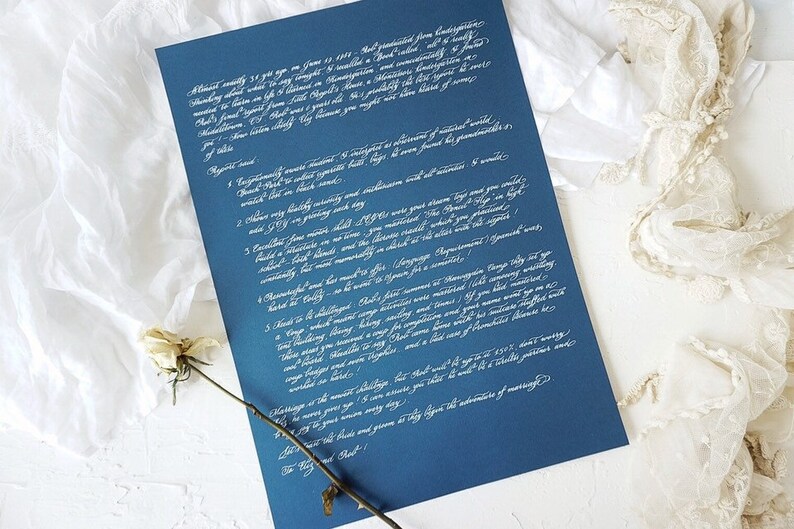 Almost exactly 31 yrs ago on June 19, 1986 - Rob graduated from kindergarten
Thinking about what to say tonight I recalled a Book called "all I really
needed to learn in life I learned in Kindergarten" and coincidentally I found
Rob's final report from Little People's House, a Montessori kindergarten in
Middletown, CT. Rob was 5 years old. It's probably the best report he ever
got! Now listen closely Eliz because you might not have heard of some
of these
Report said:
1. Exceptionally aware student. I interpret as observant of natural world
Beach Park to collect cigarette butts, bugs, he even found his grandmother's
watch lost in beach sand
2. Shows very healthy curiosity and enthusiasm with all activities. I would
add JOY in greeting each day
3. Excellent fine motor skills. LEGOs were your dream toys and you could
build a structure in no time, you mastered "The Pencil Flip" in high
school - both hands and the lacrosse cradle which you practiced
constantly but most memorably in church at the altar with the scepter!
4. Resourceful and has much to offer. (Language Requirement) Spanish was
hard at Colby... so he went to Spain for a semester!
5. Needs to be challenged. Rob's first summer at Norwegian Camp they set up
a Coup, which meant camp activities were mastered (like canoeing, wrestling,
tent building, boxing, hiring, sailing, and tennis) If you had mastered
these areas you received a coup for completion and your name went up on a
cool board. Needless to say Rob came home with his suitcase stuffed with
coup badges and even trophies... and a bad case of bronchitis because he
worked so hard!
Marriage is the newest challenge, but Rob will be up to it 150% don't worry
Eliz, he never gives up! I can assure you that he will be a terrific partner and
bring joy to your union every day
Let's toast the bride and groom as they begin the adventure of marriage
To Eliz and Rob!